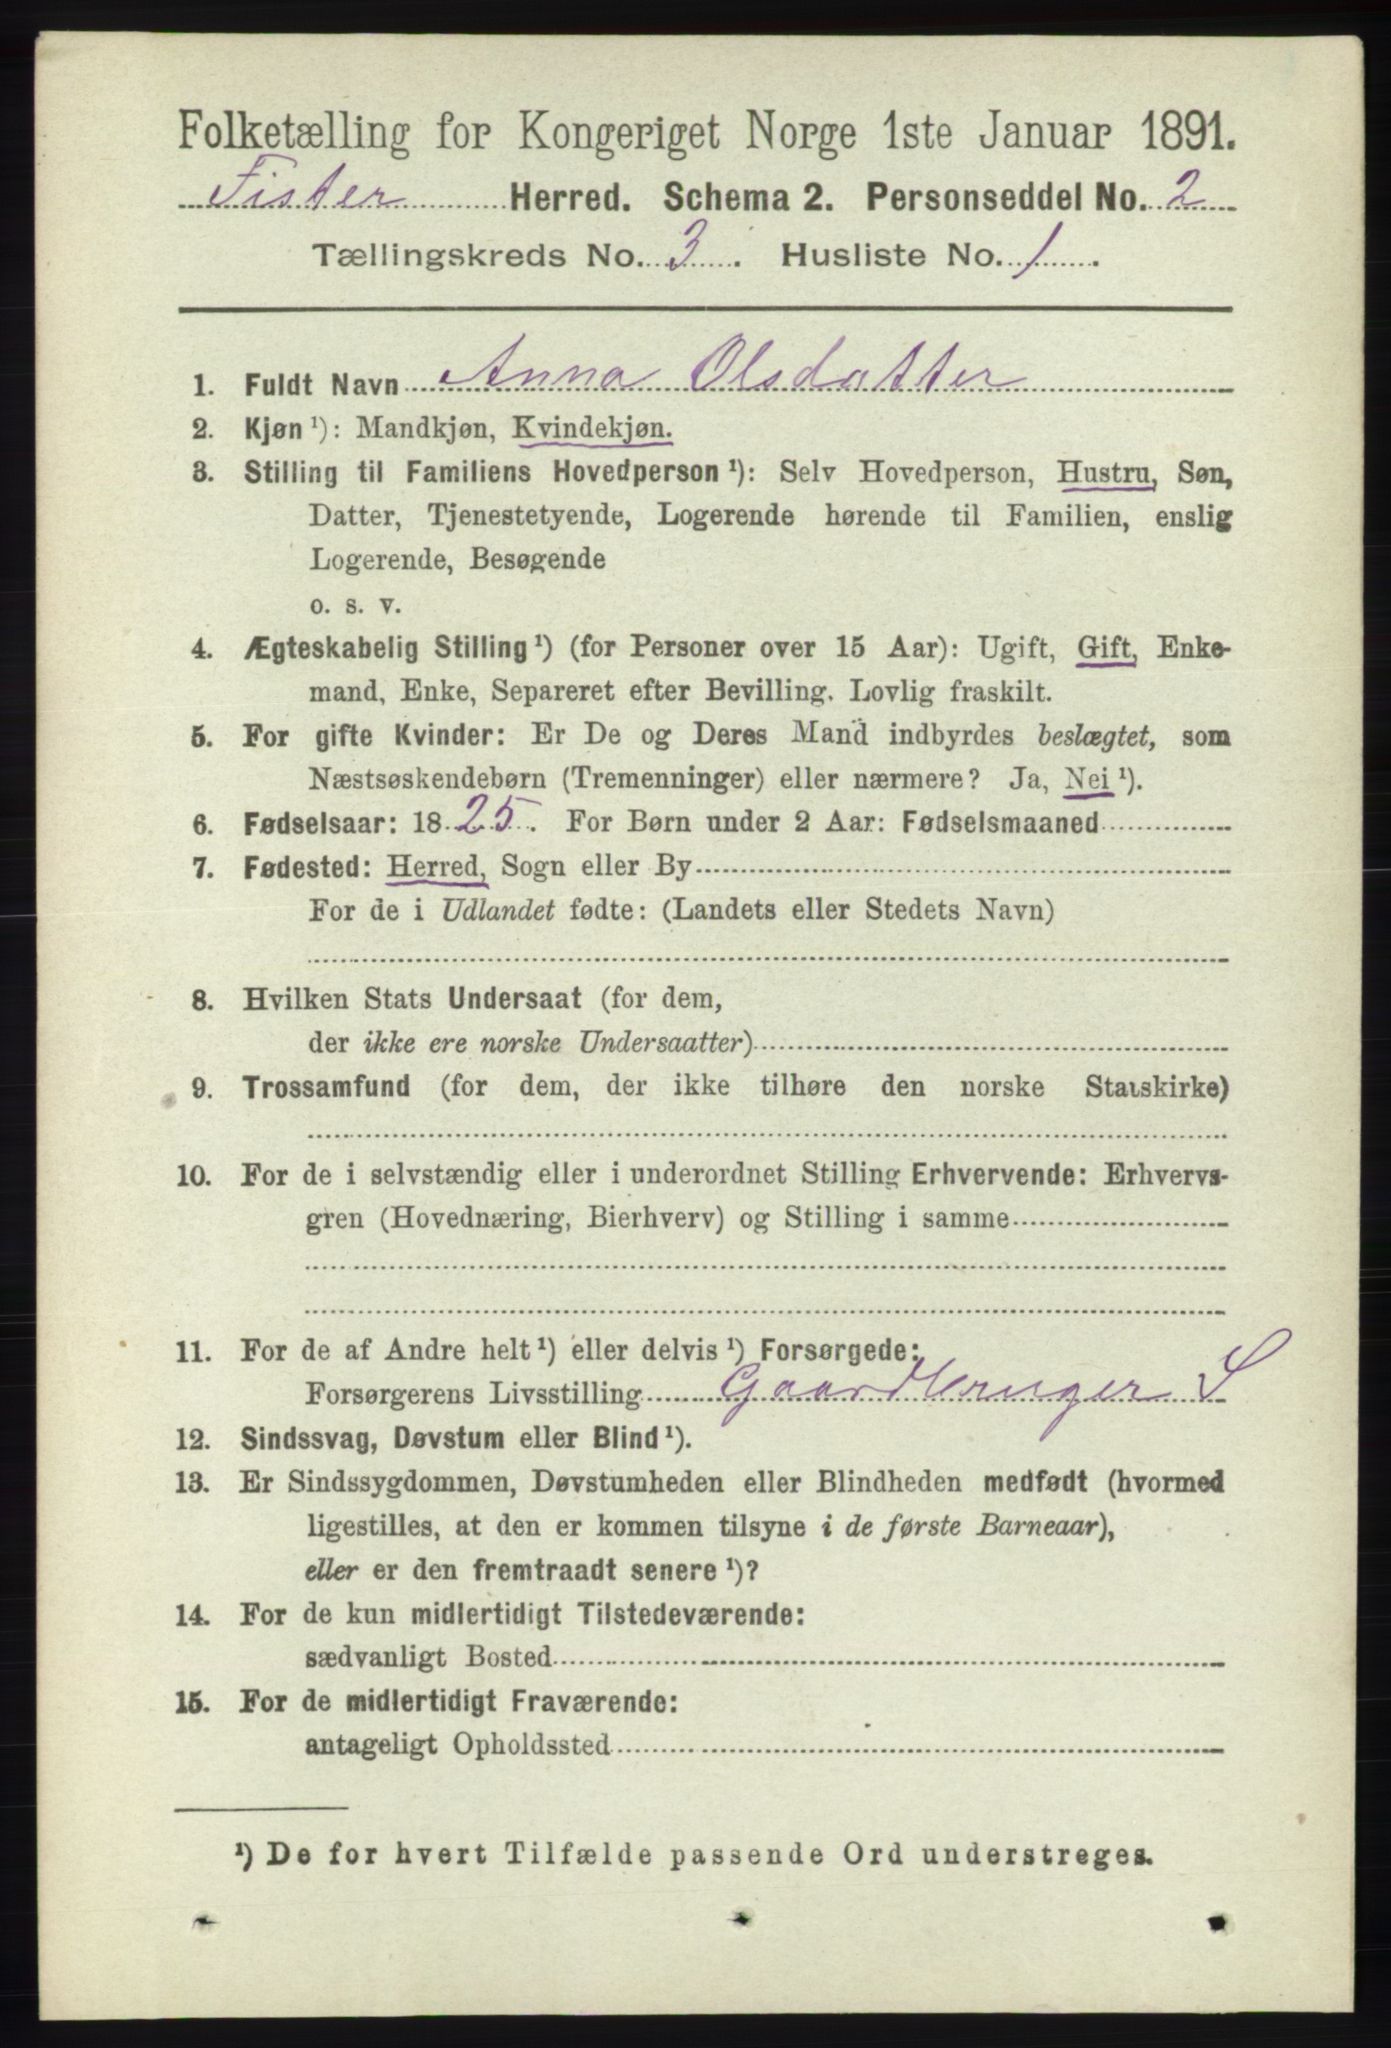 Folketælling for Kongeriget Norge 1ste Januar 1891.
Fister Herred. Schema 2. Personseddel No. 2
Tællingskreds No. 3. Husliste No. 1.
1. Fuldt Navn Anna Olsdatter
2. Kjøn ¹): Mandkjøn, Kvindekjøn.
3. Stilling til Familiens Hovedperson ¹): Selv Hovedperson, Hustru, Søn,
Datter, Tjenestetyende, Logerende hørende til Familien, enslig
Logerende, Besøgende
o. s. v.
4. Ægteskabelig Stilling ¹) (for Personer over 15 Aar): Ugift, Gift, Enke-
mand, Enke, Separeret efter Bevilling. Lovlig fraskilt.
5. For gifte Kvinder: Er De og Deres Mand indbyrdes beslægtet, som
Næstsøskendebørn (Tremenninger) eller nærmere? Ja, Nei ¹).
6. Fødselsaar: 1825. For Børn under 2 Aar: Fødselsmaaned
7. Fødested: Herred, Sogn eller By
For de i Udlandet fødte: (Landets eller Stedets Navn)
8. Hvilken Stats Undersaat (for dem,
der ikke ere norske Undersaatter)
9. Trossamfund (for dem, der ikke tilhøre den norske Statskirke)
10. For de i selvstændig eller i underordnet Stilling Erhvervende: Erhvervs-
gren (Hovednæring, Bierhverv) og Stilling i samme
11. For de af Andre helt ¹) eller delvis ¹) Forsørgede:
Forsørgerens Livsstilling Gaardbruger S
12. Sindssvag, Døvstum eller Blind ¹).
13. Er Sindssygdommen, Døvstumheden eller Blindheden medfødt (hvormed
ligestilles, at den er kommen tilsyne i de første Barneaar),
eller er den fremtraadt senere ¹)?
14. For de kun midlertidigt Tilstedeværende:
sædvanligt Bosted
15. For de midlertidigt Fraværende:
antageligt Opholdssted
¹) De for hvert Tilfælde passende Ord understreges.